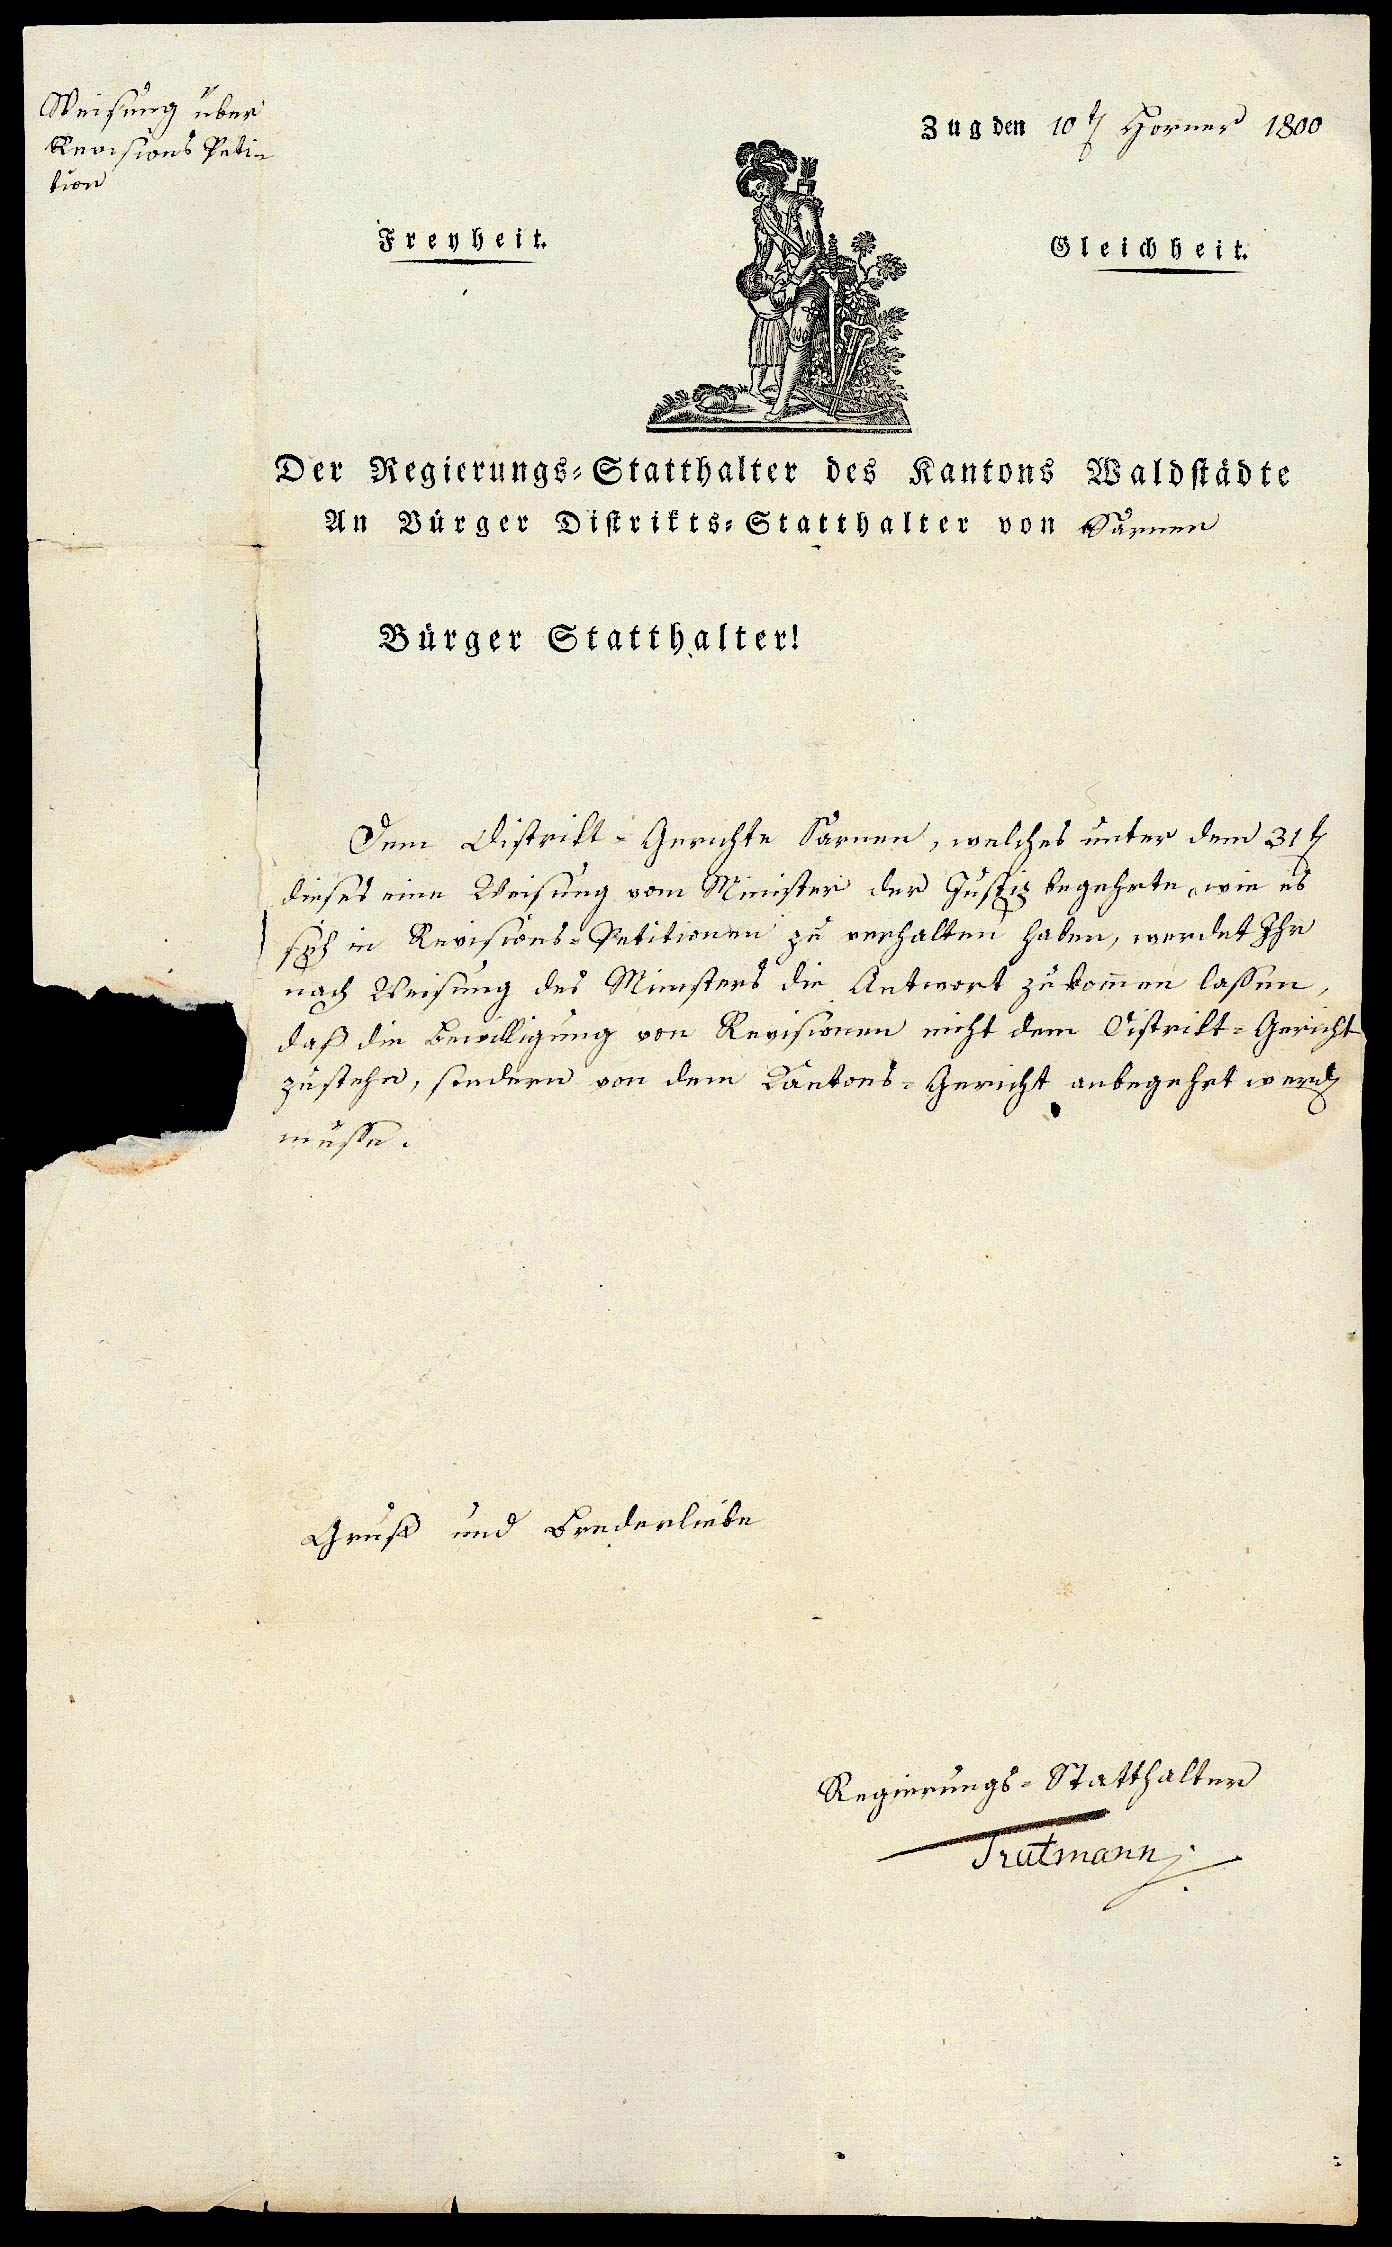 Weisung über
Revisions Peti=
tion
Zug den 10t. Horner 1800
Freyheit.
Gleichheit.
Der Regierungs=Statthalter des Kantons Waldstädte
An Bürger Distrikts=Statthalter von Sarnen
Bürger Statthalter!
Dem Distrikt=Gerichte Sarnen, welches unter dem 31t.
dieses eine Weisung vom Minister der Justiz begehrte, wie es
sich in Revisions=Petitionen zu verhalten haben, werdet Ihr
nach Weisung des Ministers die Antwort zukom̄en lassen,
daß die Bewilligung von Revisionen nicht dem Distrikt=Gericht
zustehe, sondern von dem Kantons=Gericht anbegehrt werd
müsse.
Gruß und Bruderliebe
Regierungs=Statthalter
Trutmann